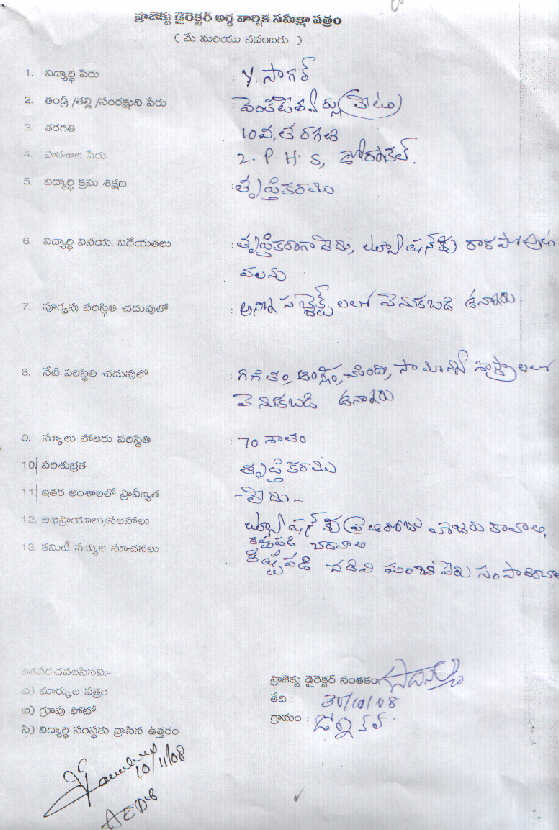 ప్రాజెక్టు డైరెక్టర్ అర్ధ వార్షిక సమీక్షా పత్రం
( మే మరియు నవంబరు )
1. విద్యార్థి పేరు : Y. సాగర్
2. తండ్రి /తల్లి /సంరక్షుని పేరు : వెంకటేశ్వర్లు (మేటు)
3. తరగతి : 10వ. తరగతి
4. పాఠశాల పేరు : Z. P. H. S,
5. విద్యార్థి క్రమ శిక్షణ : తృప్తికరము
6. విద్యార్థి వినయ విధేయతలు : తృప్తికరంగా లేదు, ట్యూషన్‌కు రాకపోవుట
వలన
7. పూర్వపు పరిస్థితి చదువులో : అన్ని సబ్జెక్ట్ లలో వెనుకబడి ఉన్నాడు
8. నేటి పరిస్థితి చదువులో : గణితం, ఆంగ్లం, హిందీ, సామాన్య శాస్త్రాలలో
వెనుకబడి ఉన్నాడు
9. స్కూలు హాజరు పరిస్థితి : 70 శాతం
10. పరిశుభ్రత : తృప్తికరము
11. ఇతర అంశాలలో ప్రావీణ్యత - లేదు -
12. అభిప్రాయాలు/సలహాలు : ట్యూషన్ కి ప్రతిరోజు హాజరు కావాలి,
కష్టపడి చదవాలి
13. కమిటీ సభ్యుల సూచనలు : కష్టపడి చదివి మంచి పేరు
జతపరచవలసినవి:-
ఎ) మార్కుల పత్రం
బి) గ్రూపు ఫోటో
సి) విద్యార్థి సంస్థకు వ్రాసిన ఉత్తరం
ప్రాజెక్టు డైరెక్టర్ సంతకం
తేది : 30/10/08
గ్రామం : డోర్నకల్
10/11/08